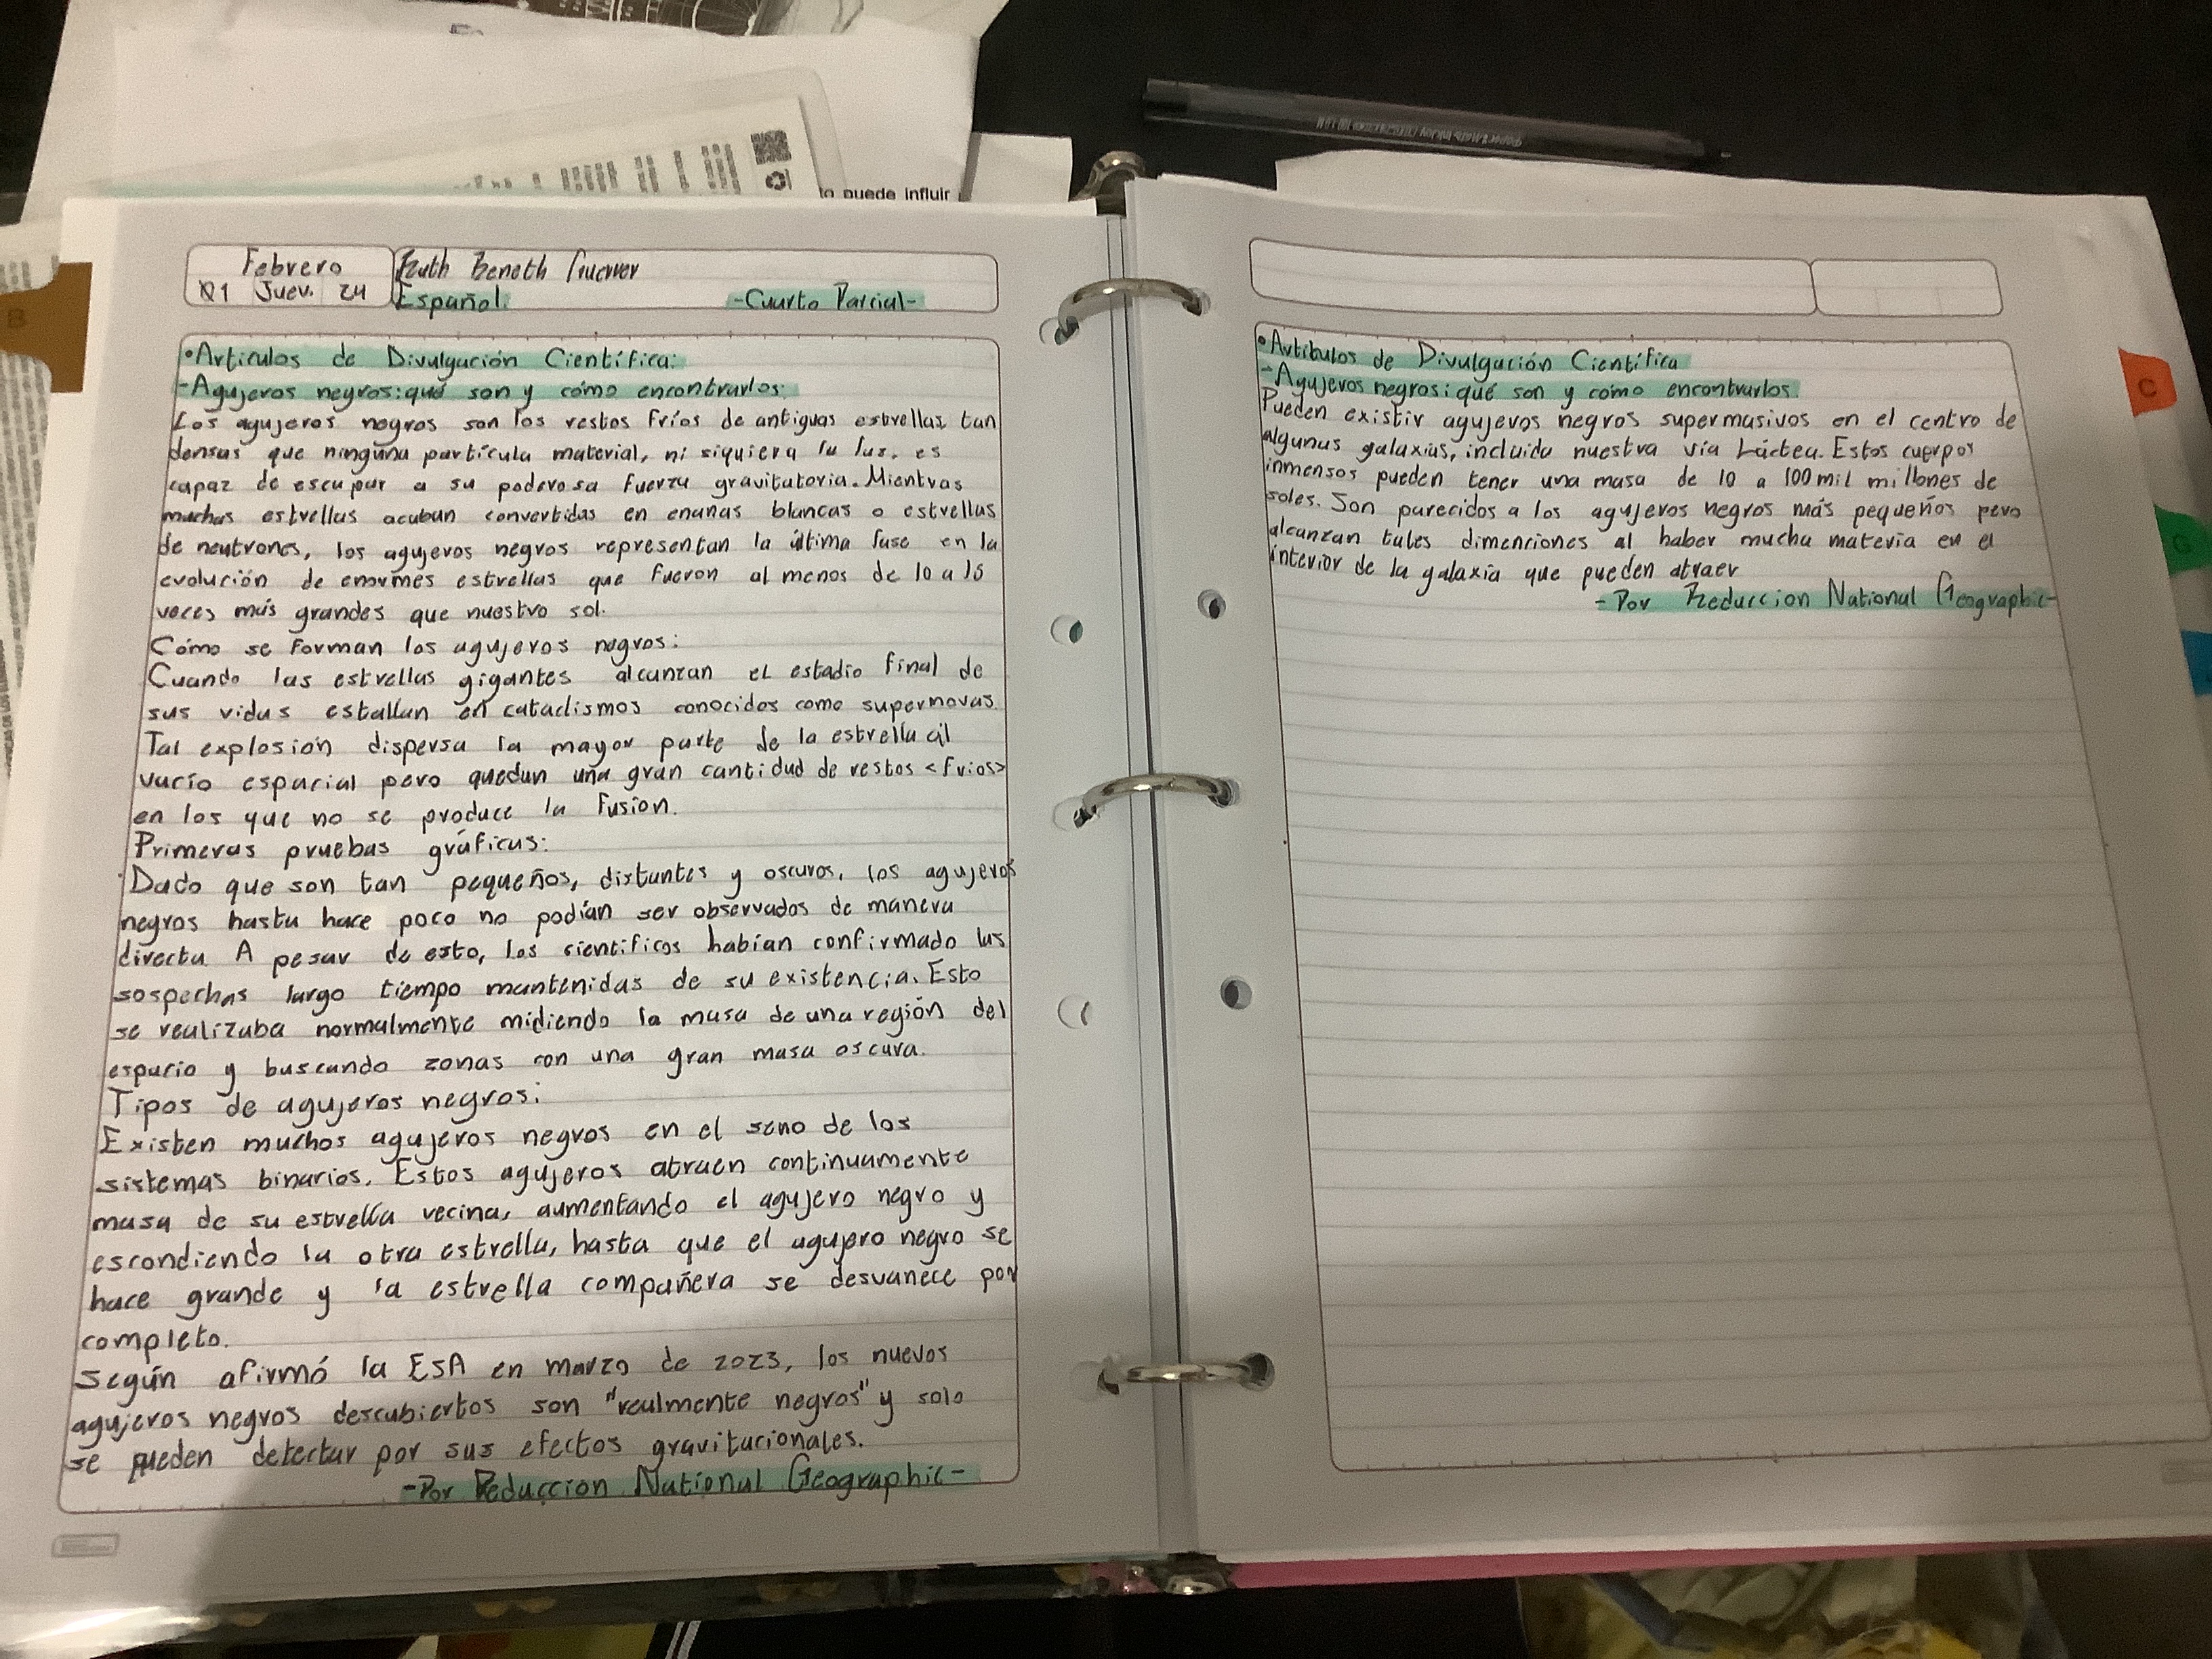 lo puede influir
Febrero
01 Juev. 24
Ruth Beneth Guerrer
Español.
-Cuarto Parcial-
•Articulos de Divulgación Científica:
-Agujeros negros: qué son y cómo encontrarlos:
Los agujeros negros son los restos fríos de antiguas estrellas tan
densas que ninguna partícula material, ni siquiera la luz, es
capaz de escapar a su poderosa fuerza gravitatoria. Mientras
muchas estrellas acaban convertidas en enanas blancas o estrellas
de neutrones, los agujeros negros representan la última fase en la
evolución de enormes estrellas que fueron al menos de 10 a 15
veces más grandes que nuestro sol.
Cómo se forman los agujeros negros:
Cuando las estrellas gigantes alcanzan el estadio final de
sus vidas estallan en cataclismos conocidos como supernovas.
Tal explosión dispersa la mayor parte de la estrella al
vacío espacial pero quedan una gran cantidad de restos <fríos>
en los que no se produce la fusion.
Primeras pruebas gráficas:
Dado que son tan pequeños, distantes y oscuros, los agujeros
negros hasta hace poco no podían ser observados de manera
directa. A pesar de esto, los científicos habían confirmado las
sospechas largo tiempo mantenidas de su existencia. Esto
se realizaba normalmente midiendo la masa de una región del
espacio y buscando zonas con una gran masa oscura.
Tipos de agujeros negros:
Existen muchos agujeros negros en el seno de los
sistemas binarios. Estos agujeros atraen continuamente
masa de su estrella vecina, aumentando el agujero negro y
escondiendo la otra estrella, hasta que el agujero negro se
hace grande y la estrella compañera se desvanece por
completo.
Según afirmó la ESA en marzo de 2023, los nuevos
agujeros negros descubiertos son "realmente negros" y solo
se pueden detectar por sus efectos gravitacionales.
-Por Redaccion National Geographic-
•Artibulos de Divulgación Científica
-Agujeros negros: qué son y cómo encontrarlos
Pueden existir agujeros negros supermasivos en el centro de
algunas galaxias, incluida nuestra vía Láctea. Estos cuerpos
inmensos pueden tener una masa de 10 a 100 mil millones de
soles. Son parecidos a los agujeros negros más pequeños pero
alcanzan tales dimenciones al haber mucha materia en el
interior de la galaxía que pueden atraer
-Por Redaccion National Geographic-
B
C
G